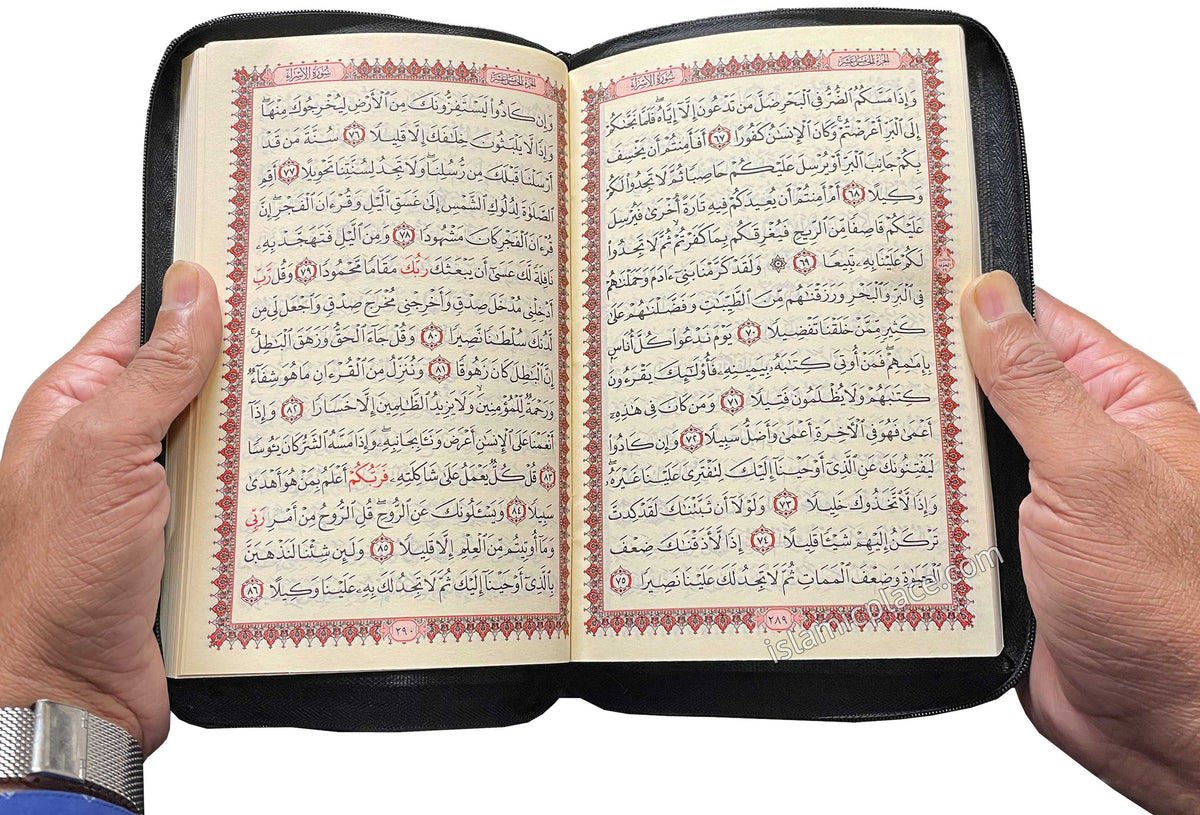 سُورَةُ الإِسْرَاءِ
الجُزْءُ الخَامِسَ عَشَرَ
وَإِذَا مَسَّكُمُ الضُّرُّ فِى الْبَحْرِ ضَلَّ مَن تَدْعُونَ إِلَّآ إِيَّاهُ فَلَمَّا نَجَّىٰكُمْ
إِلَى الْبَرِّ أَعْرَضْتُمْ وَكَانَ الْإِنسَٰنُ كَفُورًا ٦٧ أَفَأَمِنتُمْ أَن يَخْسِفَ
بِكُمْ جَانِبَ الْبَرِّ أَوْ يُرْسِلَ عَلَيْكُمْ حَاصِبًا ثُمَّ لَا تَجِدُوا لَكُمْ
وَكِيلًا ٦٨ أَمْ أَمِنتُمْ أَن يُعِيدَكُمْ فِيهِ تَارَةً أُخْرَىٰ فَيُرْسِلَ
عَلَيْكُمْ قَاصِفًا مِّنَ الرِّيحِ فَيُغْرِقَكُم بِمَا كَفَرْتُمْ ثُمَّ لَا تَجِدُوا
لَكُمْ عَلَيْنَا بِهِۦ تَبِيعًا ٦٩ ۞ وَلَقَدْ كَرَّمْنَا بَنِىٓ ءَادَمَ وَحَمَلْنَٰهُمْ
فِى الْبَرِّ وَالْبَحْرِ وَرَزَقْنَٰهُم مِّنَ الطَّيِّبَٰتِ وَفَضَّلْنَٰهُمْ عَلَىٰ
كَثِيرٍ مِّمَّنْ خَلَقْنَا تَفْضِيلًا ٧٠ يَوْمَ نَدْعُوا كُلَّ أُنَاسٍۭ
بِإِمَٰمِهِمْ فَمَنْ أُوتِىَ كِتَٰبَهُۥ بِيَمِينِهِۦ فَأُولَٰٓئِكَ يَقْرَءُونَ
كِتَٰبَهُمْ وَلَا يُظْلَمُونَ فَتِيلًا ٧١ وَمَن كَانَ فِى هَٰذِهِۦٓ
أَعْمَىٰ فَهُوَ فِى الْأَخِرَةِ أَعْمَىٰ وَأَضَلُّ سَبِيلًا ٧٢ وَإِن كَادُوا
لَيَفْتِنُونَكَ عَنِ الَّذِىٓ أَوْحَيْنَآ إِلَيْكَ لِتَفْتَرِىَ عَلَيْنَا غَيْرَهُۥ
وَإِذًا لَّاتَّخَذُوكَ خَلِيلًا ٧٣ وَلَوْلَآ أَن ثَبَّتْنَٰكَ لَقَدْ كِدتَّ
تَرْكَنُ إِلَيْهِمْ شَيْـًٔا قَلِيلًا ٧٤ إِذًا لَّأَذَقْنَٰكَ ضِعْفَ
الْحَيَوٰةِ وَضِعْفَ الْمَمَاتِ ثُمَّ لَا تَجِدُ لَكَ عَلَيْنَا نَصِيرًا ٧٥
٢٨٩
سُورَةُ الإِسْرَاءِ
الجُزْءُ الخَامِسَ عَشَرَ
وَإِن كَادُوا لَيَسْتَفِزُّونَكَ مِنَ الْأَرْضِ لِيُخْرِجُوكَ مِنْهَا
وَإِذًا لَّا يَلْبَثُونَ خِلَٰفَكَ إِلَّا قَلِيلًا ٧٦ سُنَّةَ مَن قَدْ
أَرْسَلْنَا قَبْلَكَ مِن رُّسُلِنَا وَلَا تَجِدُ لِسُنَّتِنَا تَحْوِيلًا ٧٧ أَقِمِ
الصَّلَوٰةَ لِدُلُوكِ الشَّمْسِ إِلَىٰ غَسَقِ الَّيْلِ وَقُرْءَانَ الْفَجْرِ إِنَّ
قُرْءَانَ الْفَجْرِ كَانَ مَشْهُودًا ٧٨ وَمِنَ الَّيْلِ فَتَهَجَّدْ بِهِۦ
نَافِلَةً لَّكَ عَسَىٰٓ أَن يَبْعَثَكَ رَبُّكَ مَقَامًا مَّحْمُودًا ٧٩ وَقُل رَّبِّ
أَدْخِلْنِى مُدْخَلَ صِدْقٍ وَأَخْرِجْنِى مُخْرَجَ صِدْقٍ وَاجْعَل لِّى مِن
لَّدُنكَ سُلْطَٰنًا نَّصِيرًا ٨٠ وَقُلْ جَآءَ الْحَقُّ وَزَهَقَ الْبَٰطِلُ
إِنَّ الْبَٰطِلَ كَانَ زَهُوقًا ٨١ وَنُنَزِّلُ مِنَ الْقُرْءَانِ مَا هُوَ شِفَآءٌ
وَرَحْمَةٌ لِّلْمُؤْمِنِينَ وَلَا يَزِيدُ الظَّٰلِمِينَ إِلَّا خَسَارًا ٨٢ وَإِذَآ
أَنْعَمْنَا عَلَى الْإِنسَٰنِ أَعْرَضَ وَنَـَٔا بِجَانِبِهِۦ وَإِذَا مَسَّهُ الشَّرُّ كَانَ يَـُٔوسًا
٨٣ قُلْ كُلٌّ يَعْمَلُ عَلَىٰ شَاكِلَتِهِۦ فَرَبُّكُمْ أَعْلَمُ بِمَنْ هُوَ أَهْدَىٰ
سَبِيلًا ٨٤ وَيَسْـَٔلُونَكَ عَنِ الرُّوحِ قُلِ الرُّوحُ مِنْ أَمْرِ رَبِّى
وَمَآ أُوتِيتُم مِّنَ الْعِلْمِ إِلَّا قَلِيلًا ٨٥ وَلَئِن شِئْنَا لَنَذْهَبَنَّ
بِالَّذِىٓ أَوْحَيْنَآ إِلَيْكَ ثُمَّ لَا تَجِدُ لَكَ بِهِۦ عَلَيْنَا وَكِيلًا ٨٦
٢٩٠
islamicplace.com